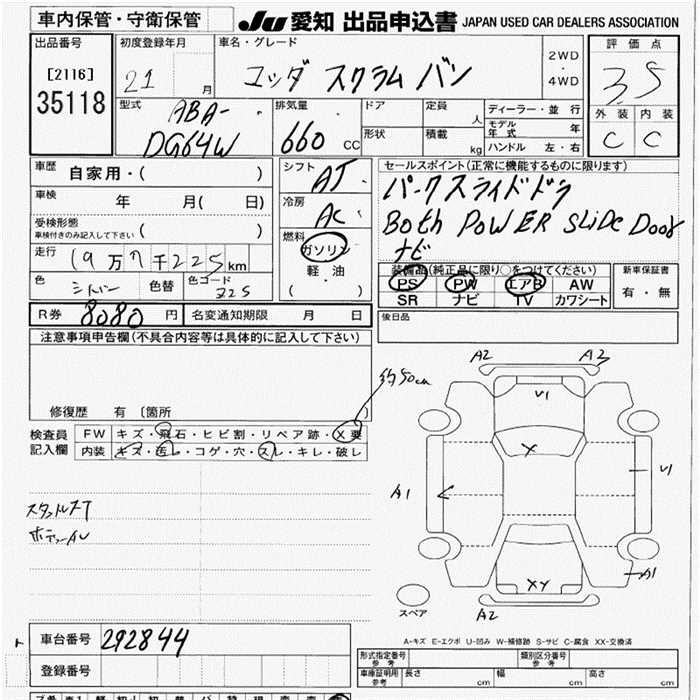 車内保管・守衛保管
JU 愛知 出品申込書 JAPAN USED CAR DEALERS ASSOCIATION
出品番号
[2116]
35118
初度登録年月
21 月
車名・グレード
マツダ スクラム バン
2WD
・
4WD
評価点
3.5
外装 内装
C C
型式
ABA-
DG64W
排気量
660 CC
ドア
形状
定員 人
積載 kg
ディーラー・並行
モデル年式 年
ハンドル 左・右
車歴 自家用・( )
車検 年 月( 日)
受検形態
車検付きのみ記入して下さい ( )
走行 19万7千225km
色 シルバー 色替 色コード Z2S
シフト AT
冷房 AC
燃料
ガソリン
軽油
( )
セールスポイント(正常に機能するものに限ります)
パークスライドドラ
Both POWER SLiDe Door
ナビ
装備品(純正品に限り○をつけてください)
PS PW エアB AW
SR ナビ TV カワシート
新車保証書
有・無
後日品
R券 8080 円 名変通知期限 月 日
注意事項申告欄(不具合内容等は具体的に記入して下さい)
修復歴 有 〔箇所 〕
約50cm
検査員
記入欄
FW キズ・飛石・ヒビ割・リペア跡・X要
内装 キズ・汚レ・コゲ・穴・スレ・キレ・破レ
A2 A2
U1
Y
A1
U1
XY
A1
A2
スペア
A-キズ E-エクボ U-凹み W-補修跡 S-サビ C-腐食 XX-交換済
車台番号 292844
登録番号
形式指定番号
参考
類別区分番号
参考
車庫証明用
参考
長さ cm 幅 cm 高さ cm